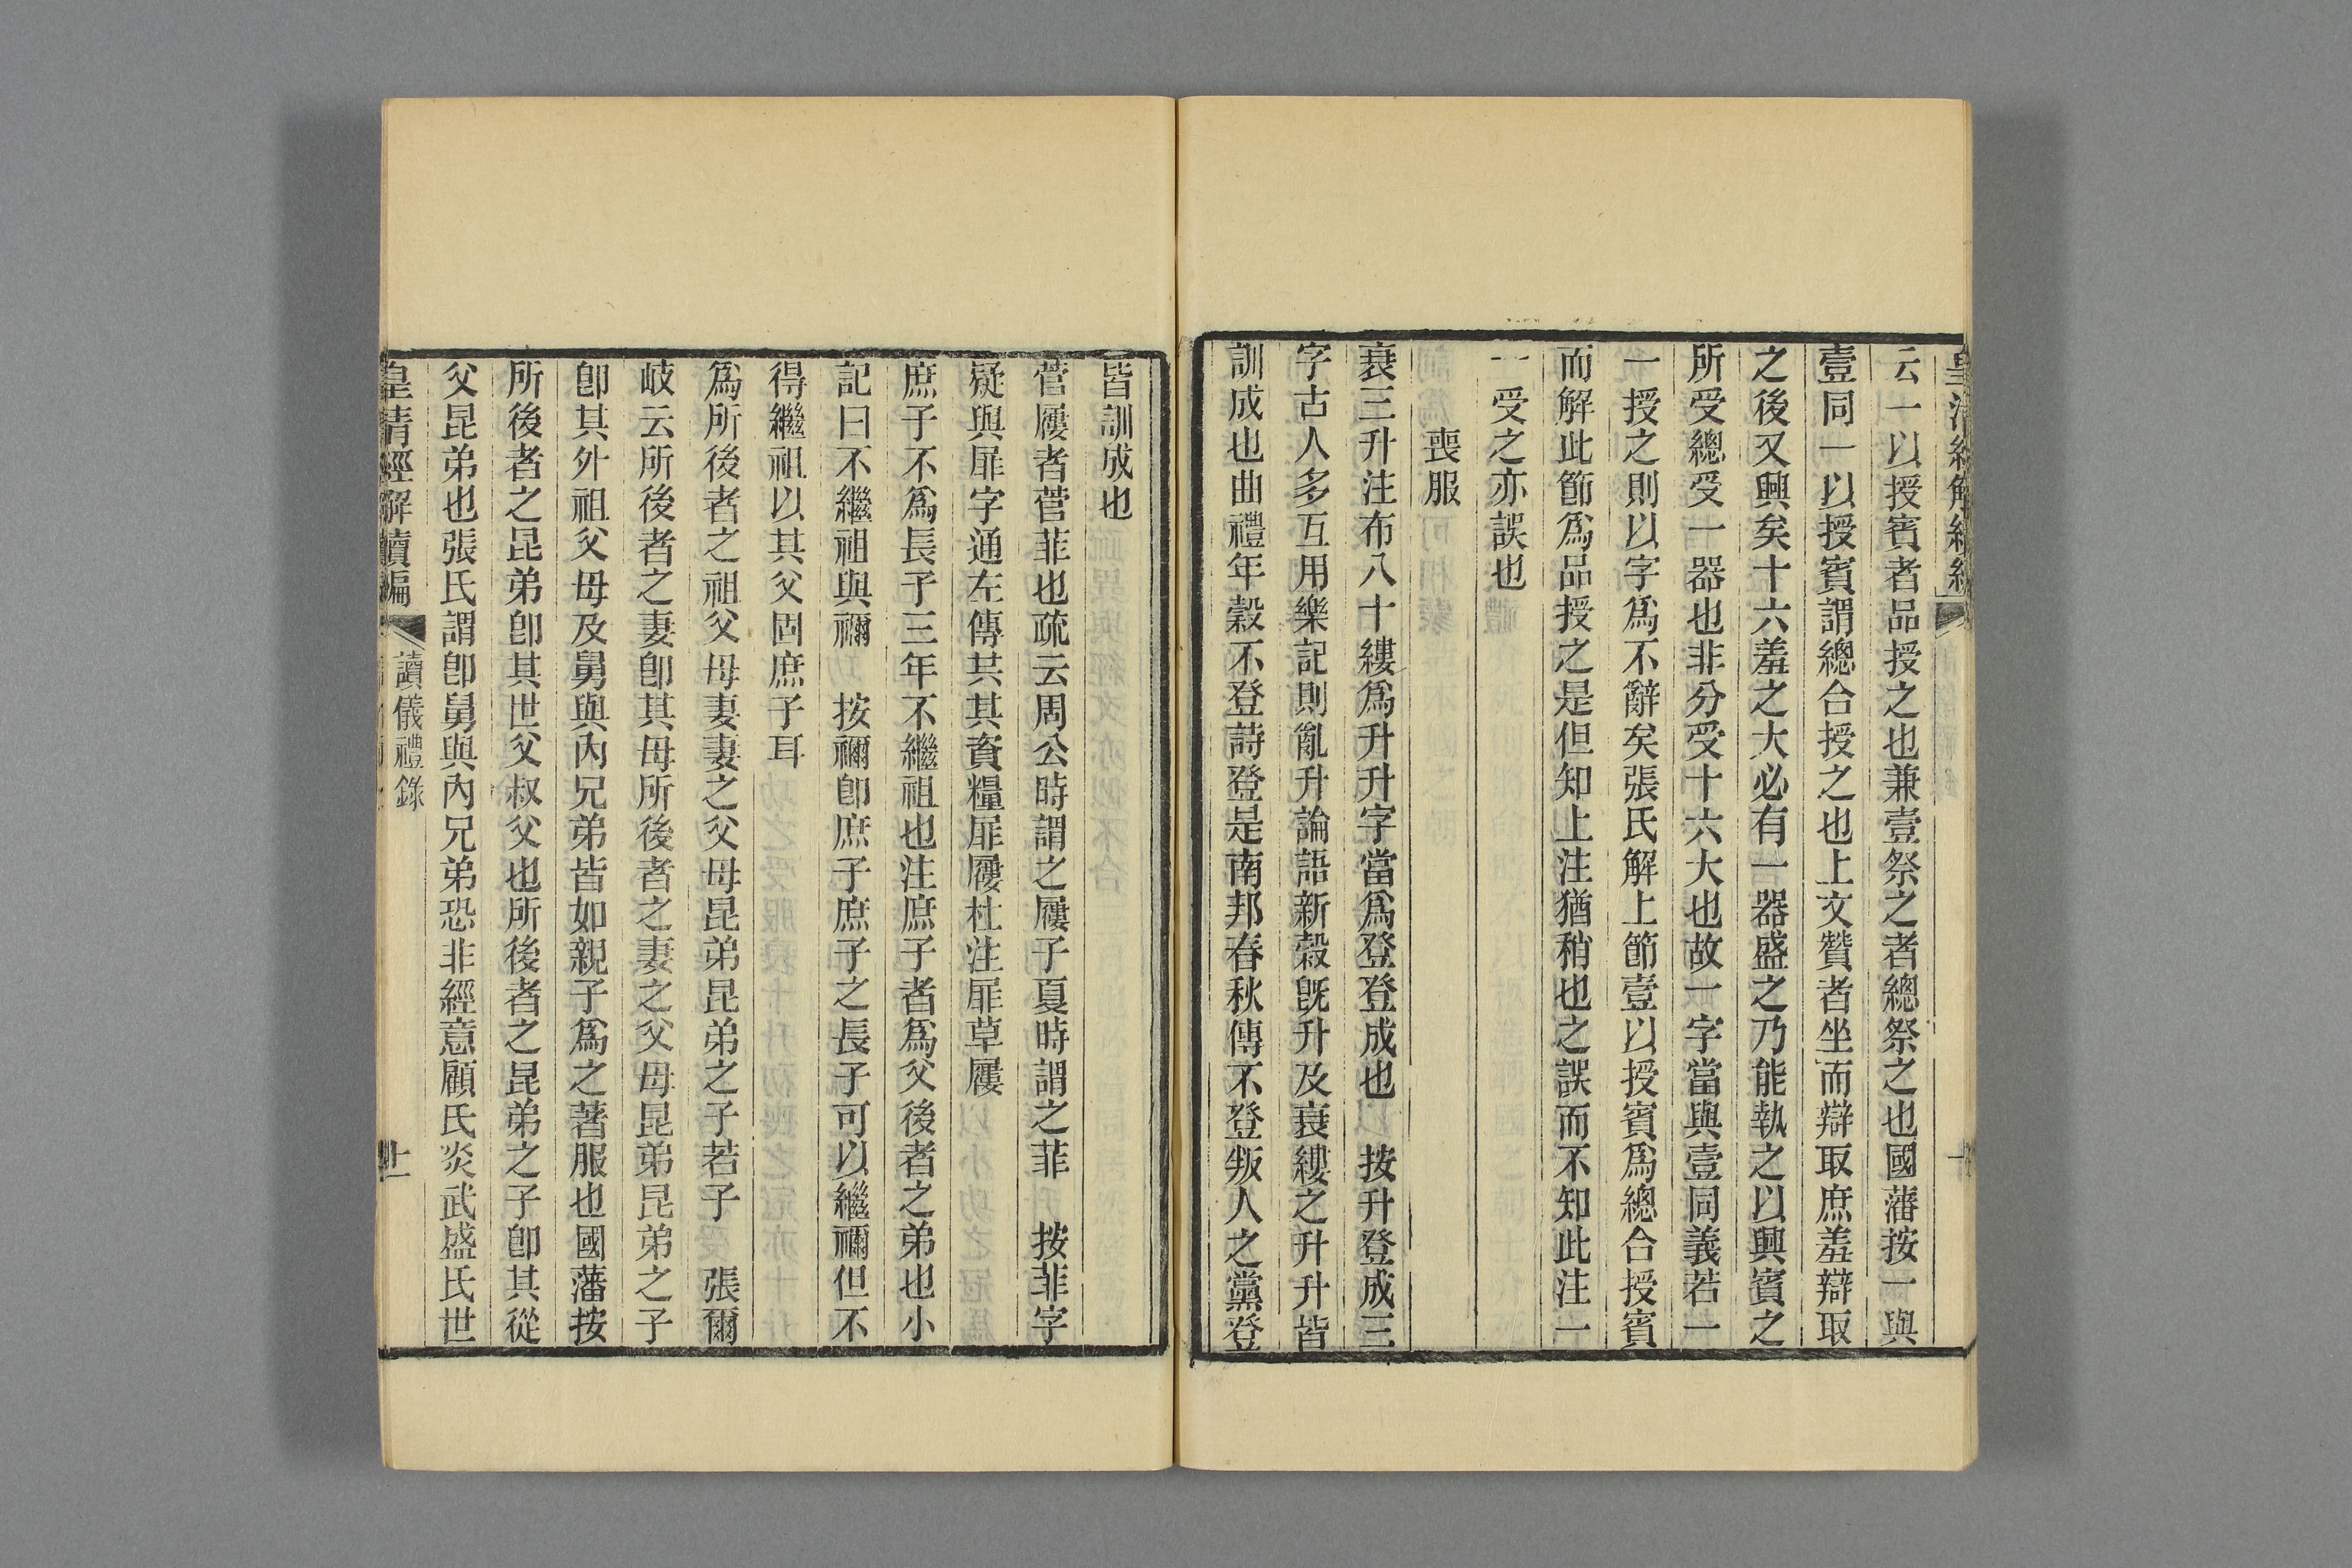 云一以授賓者品授之也兼壹祭之者總祭之也國藩按一與
壹同一以授賓謂總合授之也上文贊者坐而辯取庶羞辯取
之後又興矣十六羞之大必有一器盛之乃能執之以興賓之
所受總受一器也非分受十六大也故一字當與壹同義若一
一授之則以字爲不辭矣張氏解上節壹以授賓爲總合授賓
而解此節爲品授之是但知上注猶稍也之誤而不知此注一
一受之亦誤也
喪服
衰三升注布八十縷爲升升字當爲登登成也　按升登成三
字古人多互用樂記則亂升論語新穀旣升及衰縷之升升皆
訓成也曲禮年穀不登詩登是南邦春秋傳不登叛人之黨登
皆訓成也
菅屨者菅菲也疏云周公時謂之屨子夏時謂之菲　按菲字
疑與屝字通左傳共其資糧屝屨杜注屝草屨
庶子不爲長子三年不繼祖也注庶子者爲父後者之弟也小
記曰不繼祖與禰　按禰卽庶子庶子之長子可以繼禰但不
得繼祖以其父固庶子耳
爲所後者之祖父母妻妻之父母昆弟昆弟之子若子　張爾
岐云所後者之妻卽其母所後者之妻之父母昆弟昆弟之子
卽其外祖父母及舅與內兄弟皆如親子爲之著服也國藩按
所後者之昆弟卽其世父叔父也所後者之昆弟之子卽其從
父昆弟也張氏謂卽舅與內兄弟恐非經意顧氏炎武盛氏世
皇清經解續編
讀儀禮錄